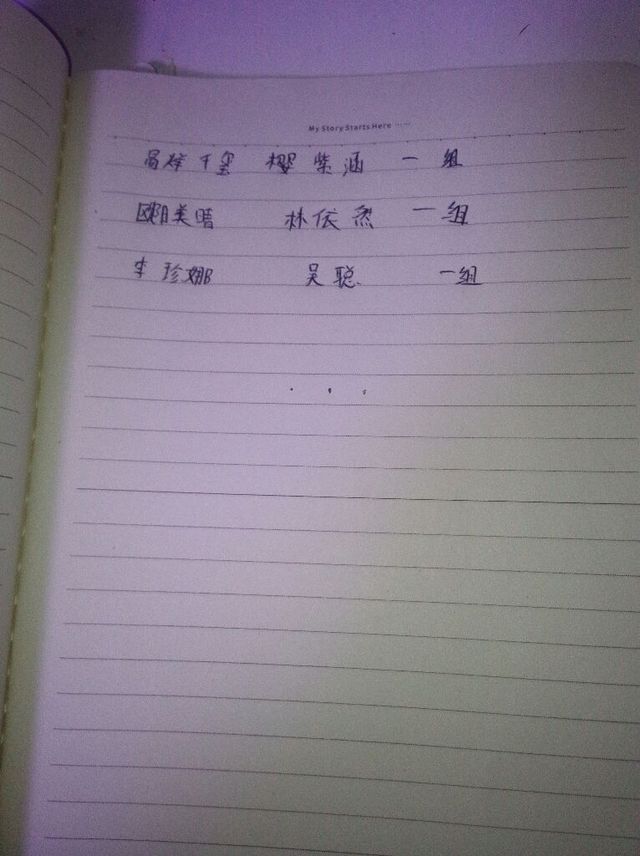 My Story Starts Here ......
千玺 樱紫涵 一组
欧阳美 林依然 一组
李珍娜 吴聪 一组
...